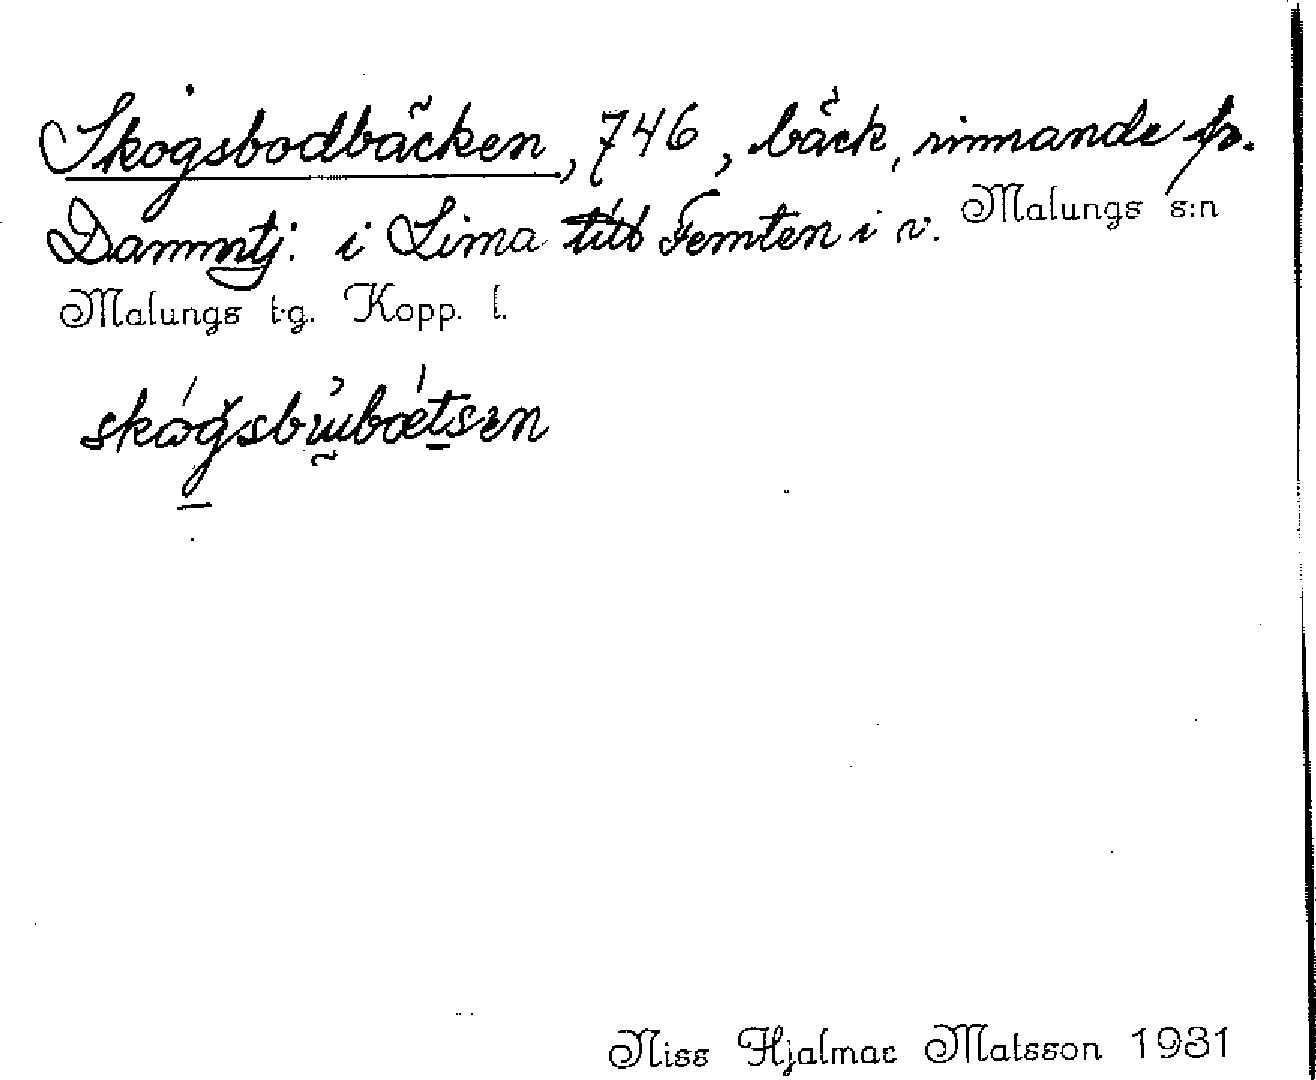 Skogsbodbäcken, 746, bäck, rinnande fr.
Dammtj. i Lima till Femten i v. Malungs s:n
Malungs t.g. Kopp. l.
Niss Hjalmar Matsson 1931